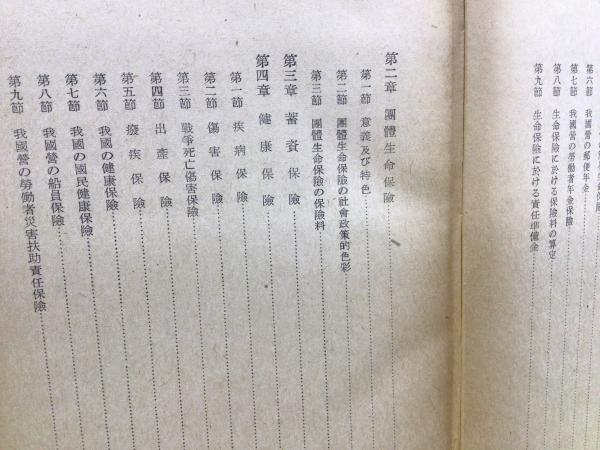 第六節 我國營の郵便年金
第七節 我國營の勞働者年金保險
第八節 生命保險に於ける保險料の算定
第九節 生命保險に於ける責任準備金
第二章 團體生命保險
第一節 意義及び特色
第二節 團體生命保險の社會政策的色彩
第三節 團體生命保險の保險料
第三章 蓄資保險
第四章 健康保險
第一節 疾病保險
第二節 傷害保險
第三節 戰爭死亡傷害保險
第四節 出產保險
第五節 癈疾保險
第六節 我國の健康保險
第七節 我國の國民健康保險
第八節 我國營の船員保險
第九節 我國營の勞働者災害扶助責任保險